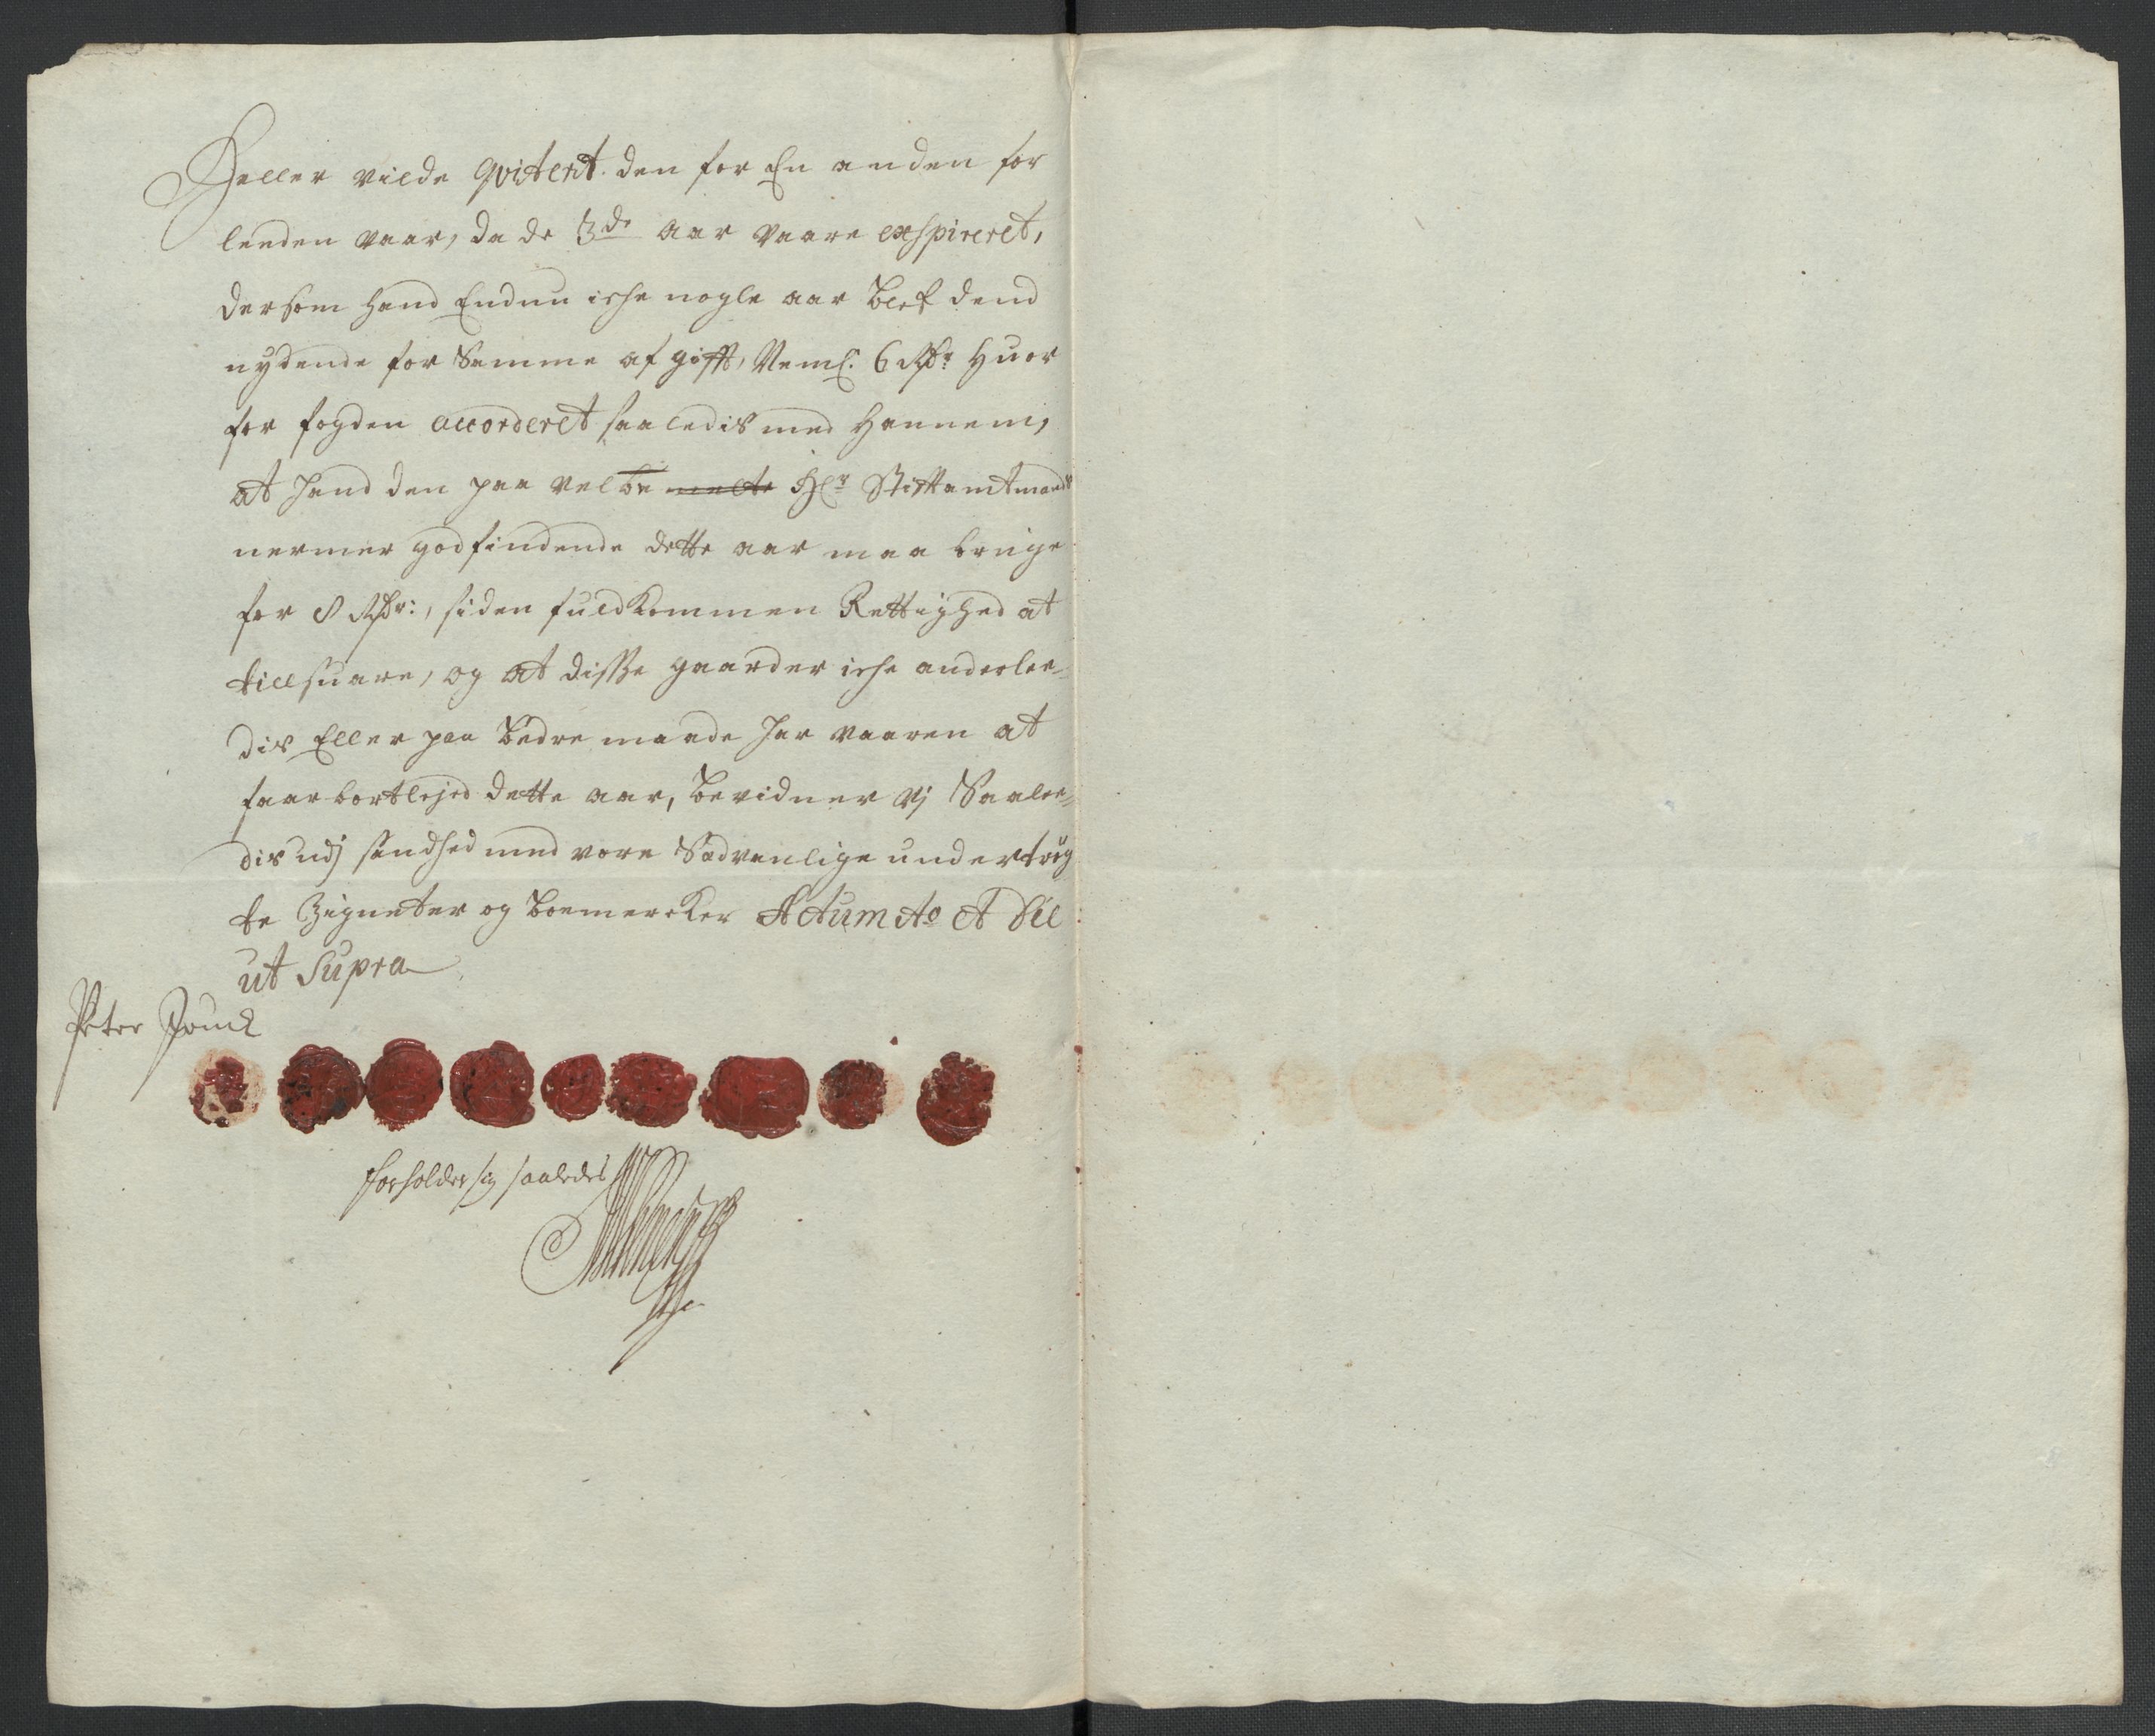 Heller vilde qviterit den for En anden for
leeden vaar, da de 3de aar vaare exspireret,
dersom hand Endnu iche nogle aar blef dend
nydende for Samme afgifft, Neml. 6 Rdr Huor
for fogden accorderet saaledis med hannem,
at hand den paa velbe melte Hr Stifftamtmands
nermer godfindende dette aar maa bruge
for 8 Rdr:, siden fuldkommen Rettighed at
tillsuare, og at disse gaarder iche anderlee-
dis Eller paa bedre maade har vaaren at
faar bortlejed dette aar, bevidner vj Saalee-
dis udj sandhed med vore Sædvanlige undertrøg
te Zigneter og boemercker Actum Ao et Die
ut Supra
Peter
forholder sig saaledes